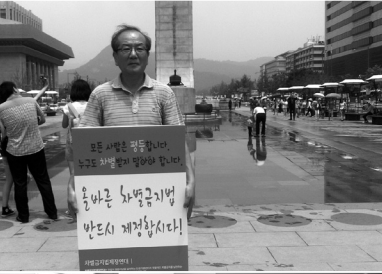 모든 사람은 평등합니다.
누구도 차별받지 말아야 합니다.
올바른 차별금지법
반드시 제정합시다!
차별금지법제정연대